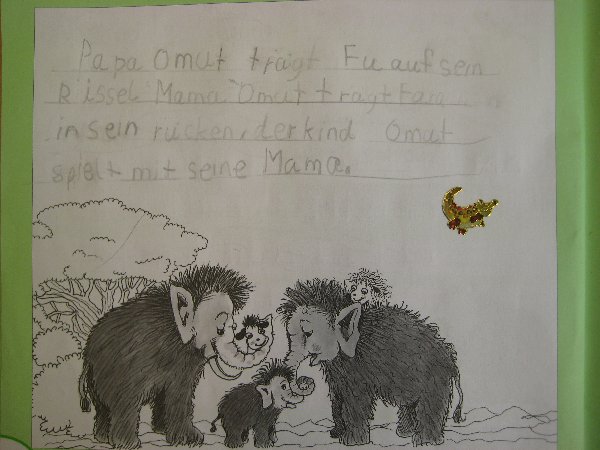 Papa Omut trägt Fu auf sein
Rüssel Mama Omut trägt Fara
in sein rücken, der kind Omut
spielt mit seine Mama.